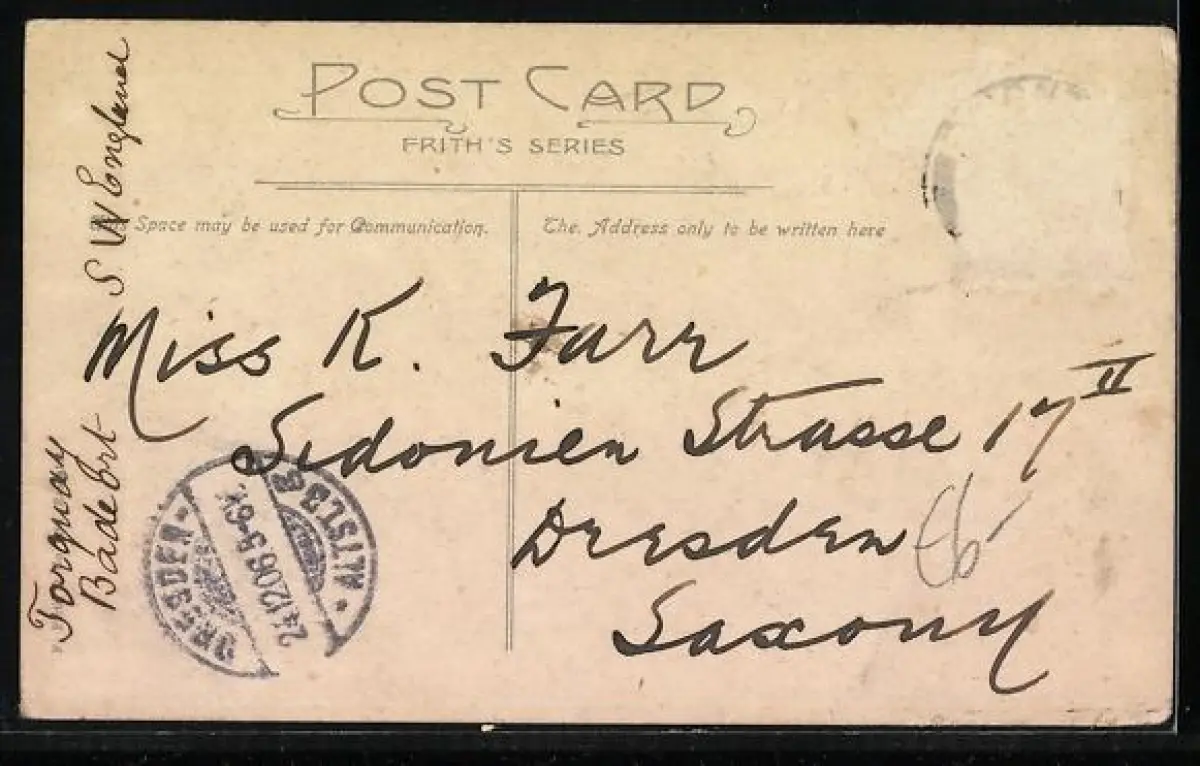 POST CARD
FRITH'S SERIES
Space may be used for Communication.
The Address only to be written here
Miss K. Farr
Sidonien Strasse 17 II
Dresden
Saxony
Torquay
Badeort
S W England
DRESDEN
24.12.06.5-6N.
ALTST.